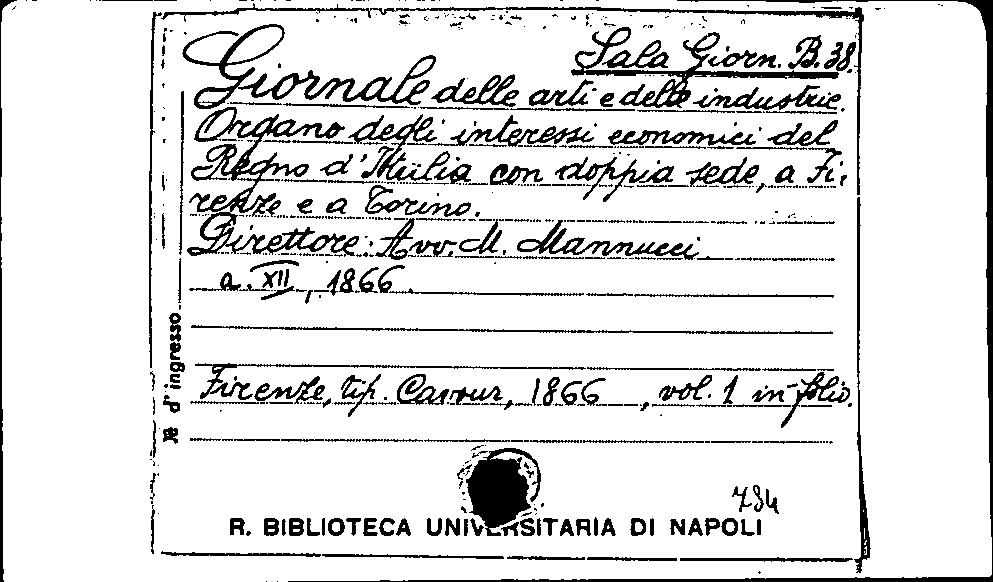 Sala Giorn. B. 38.
Giornale delle arti e delle industrie.
Organo degli interessi economici del
Regno d'Italia con doppia sede, a Fi-
renze e a Torino.
Direttore: Avv. M. Mannucci.
a. XII, 1866.
Firenze, tip. Cavour, 1866, vol. 1 in-folio.
d'ingresso
784
R. BIBLIOTECA UNIVERSITARIA DI NAPOLI